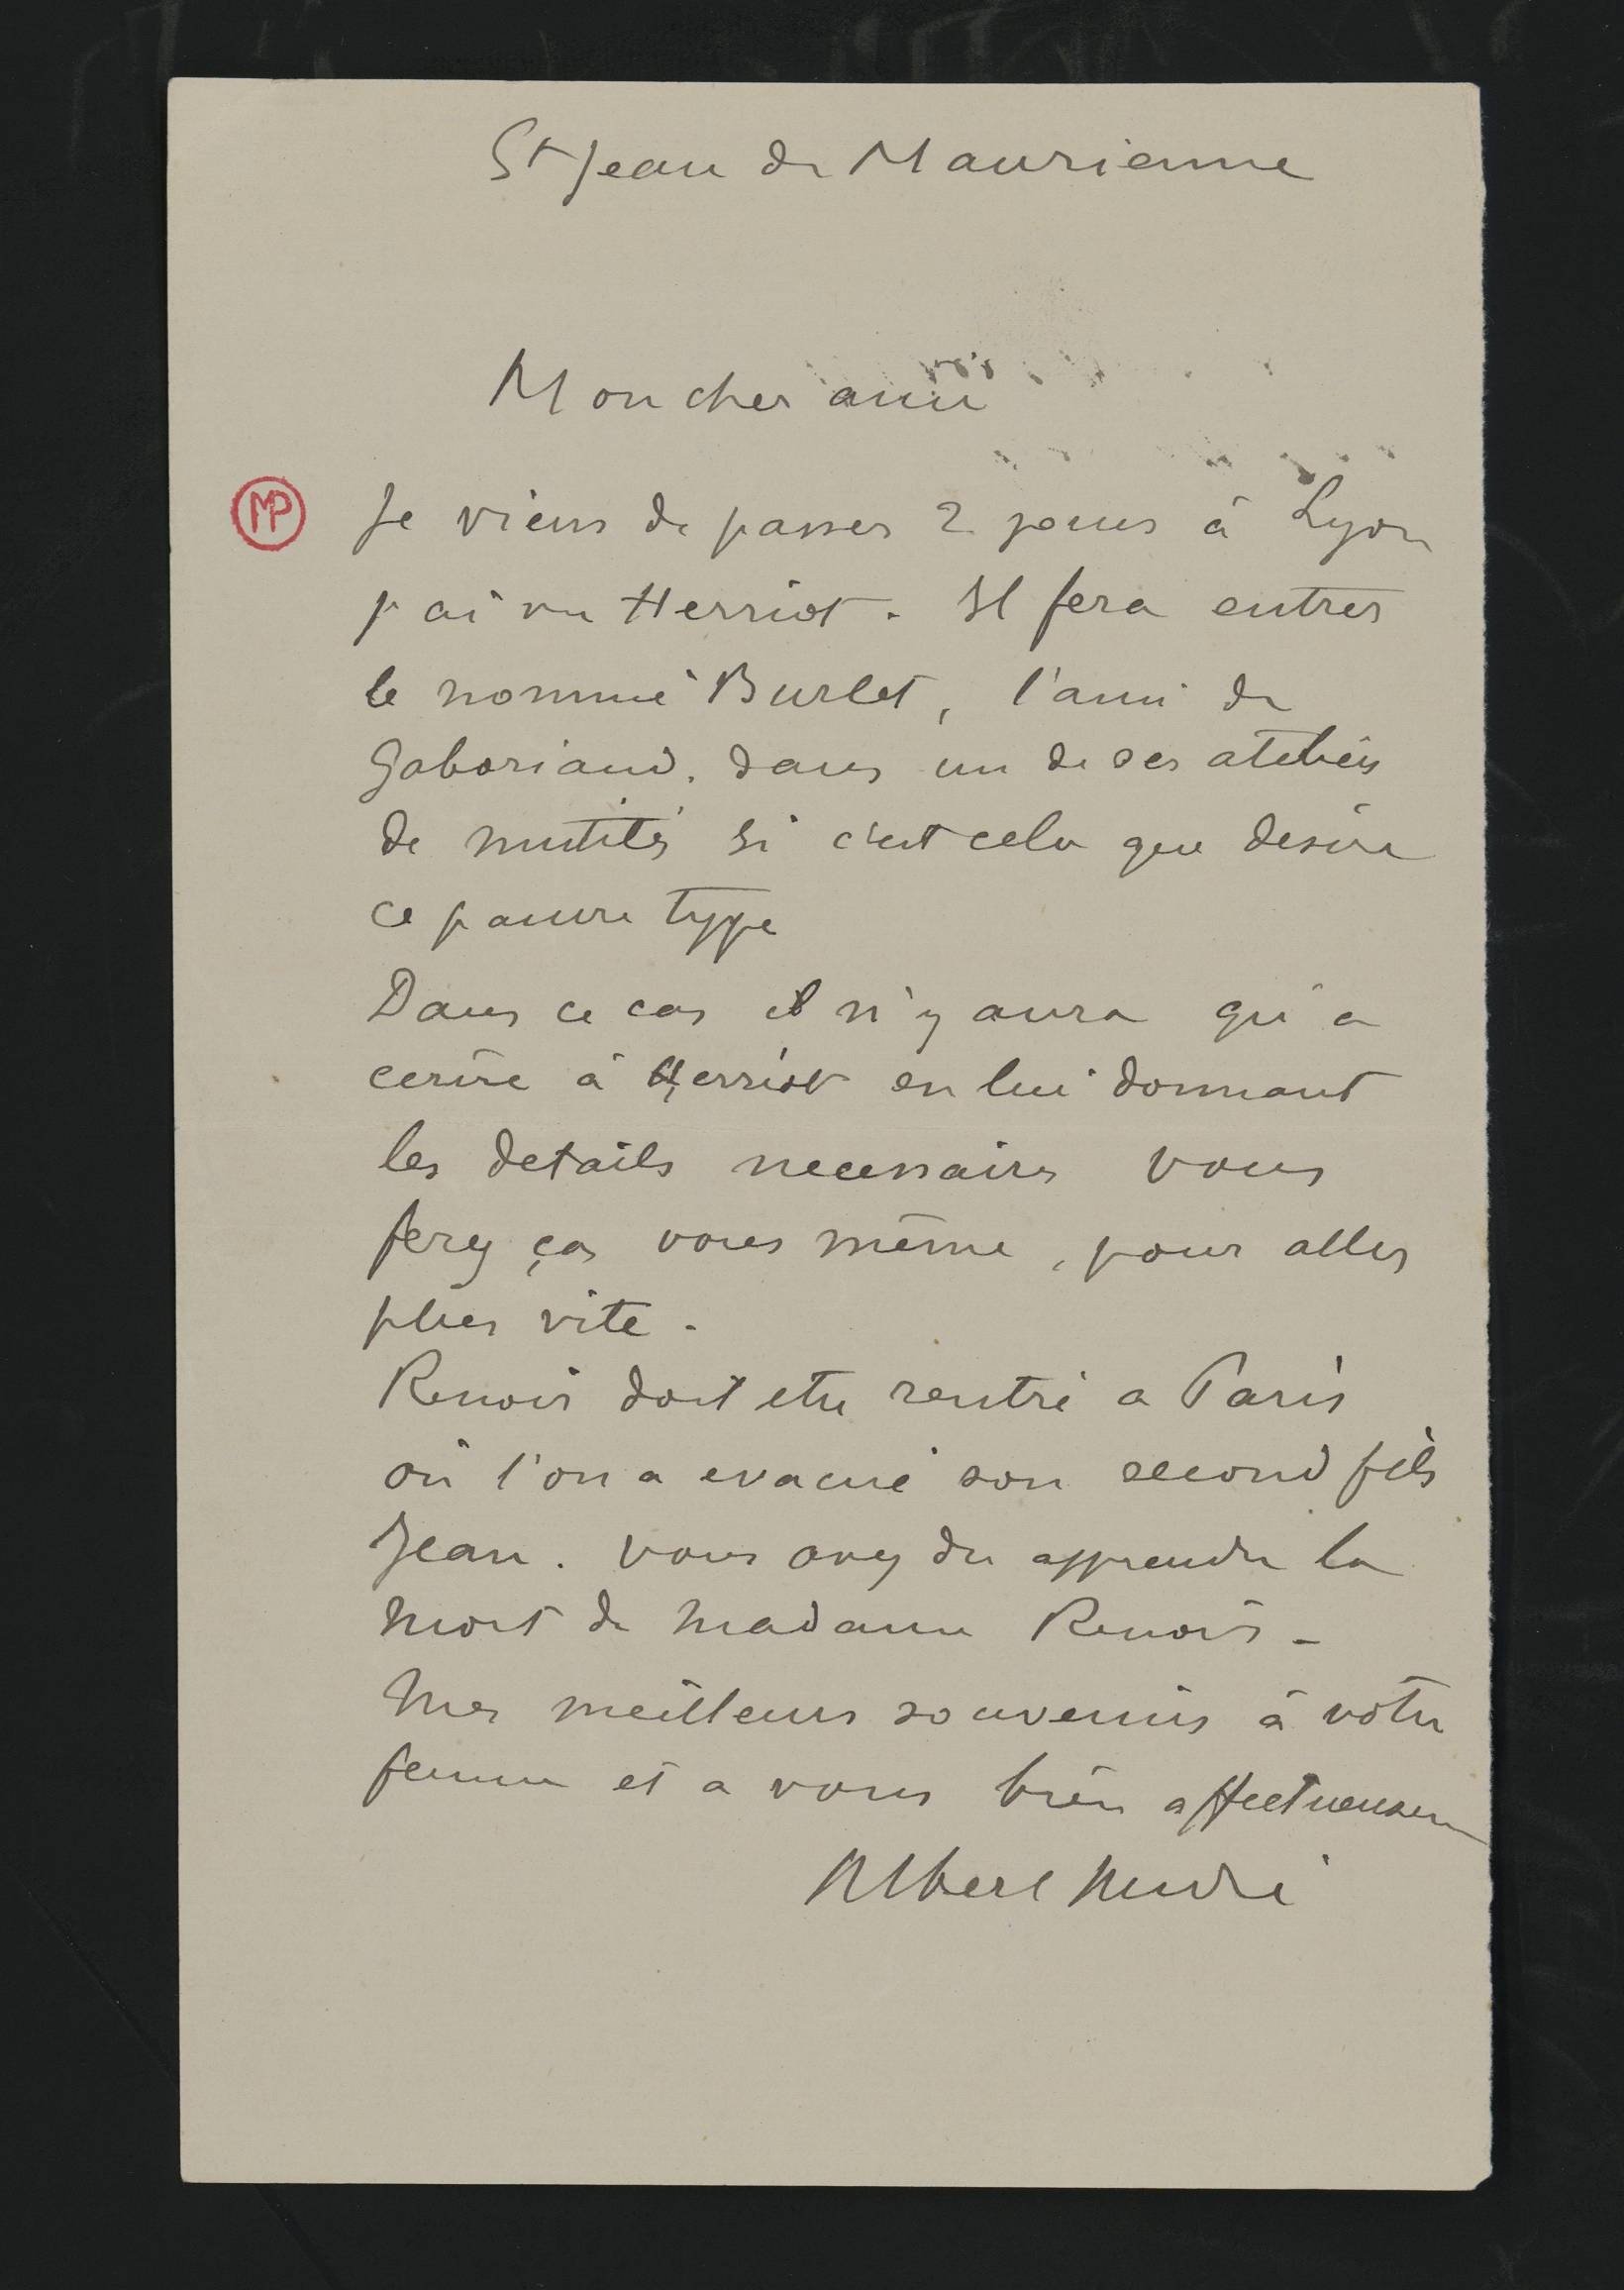 St Jean de Maurienne
Mon cher ami
MP
Je viens de passer 2 jours à Lyon
j'ai vu Herriot. Il fera entrer
le nommé Burlet, l'ami de
Gaboriaud. dans un de ses ateliers
de mutilés si c'est cela que desire
ce pauvre type
Dans ce cas il n'y aura qu'a
ecrire à Herriot en lui donnant
les details necessaires vous
ferez ça vous même, pour aller
plus vite.
Renoir doit etre rentré a Paris
où l'on a evacué son second fils
Jean. vous avez du apprendre la
mort de madame Renoir -
Mes meilleurs souvenirs à votre
femme et a vous bien affectueusem
Albert André